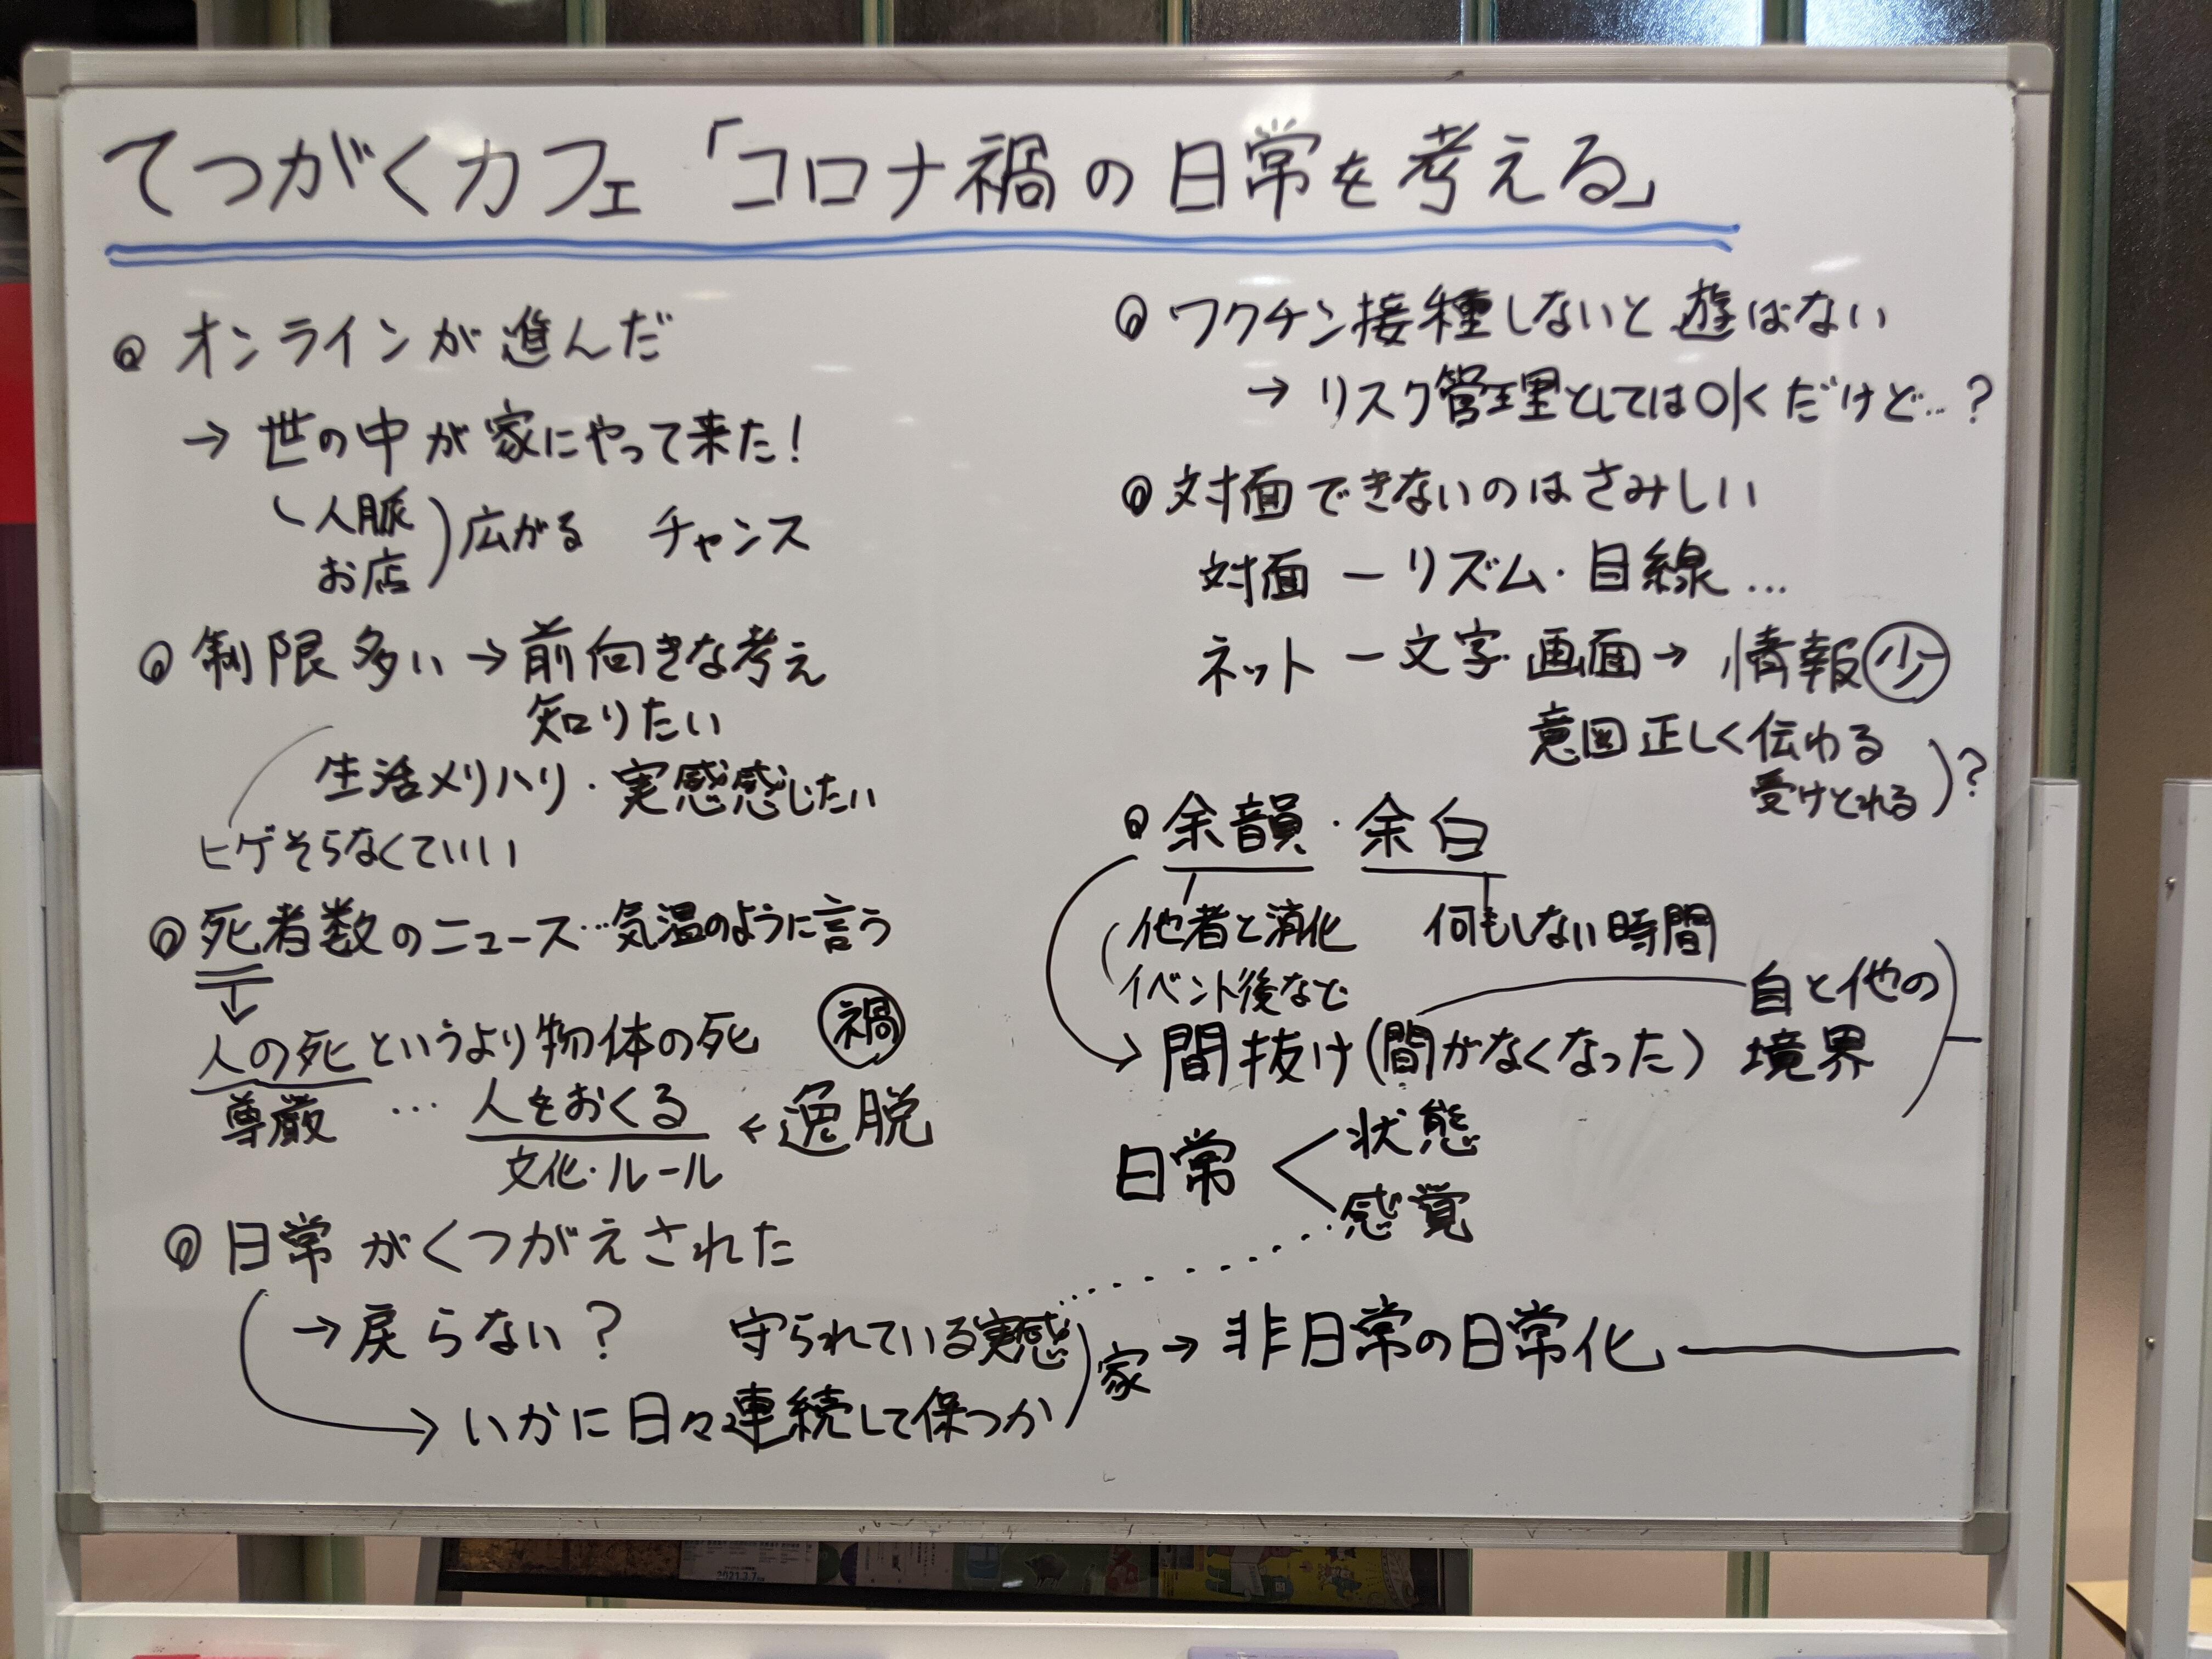 てつがくカフェ「コロナ禍の日常を考える」
◎ オンラインが進んだ
→ 世の中が家にやって来た!
人脈
お店
)広がる チャンス
◎ 制限多い→前向きな考え
知りたい
生活メリハリ・実感感じたい
ヒゲそらなくていい
◎ 死者数のニュース…気温のように言う
人の死というより物体の死 禍
尊厳 … 人をおくる ← 逸脱
文化・ルール
◎ 日常がくつがえされた
→戻らない?
守られている実感
→ いかに日々連続して保つか
家 → 非日常の日常化
◎ ワクチン接種しないと遊ばない
→ リスク管理としては だけど…?
◎ 対面できないのはさみしい
対面 ー リズム・目線…
ネット ー 文字・画面→ 情報少
意図正しく伝わる
受けとれる
)?
◎ 余韻・余白
他者と消化 何もしない時間
イベント後など
→ 間抜け(間がなくなった)
自と他の
境界
日常 < 状態
感覚
2021.3.7